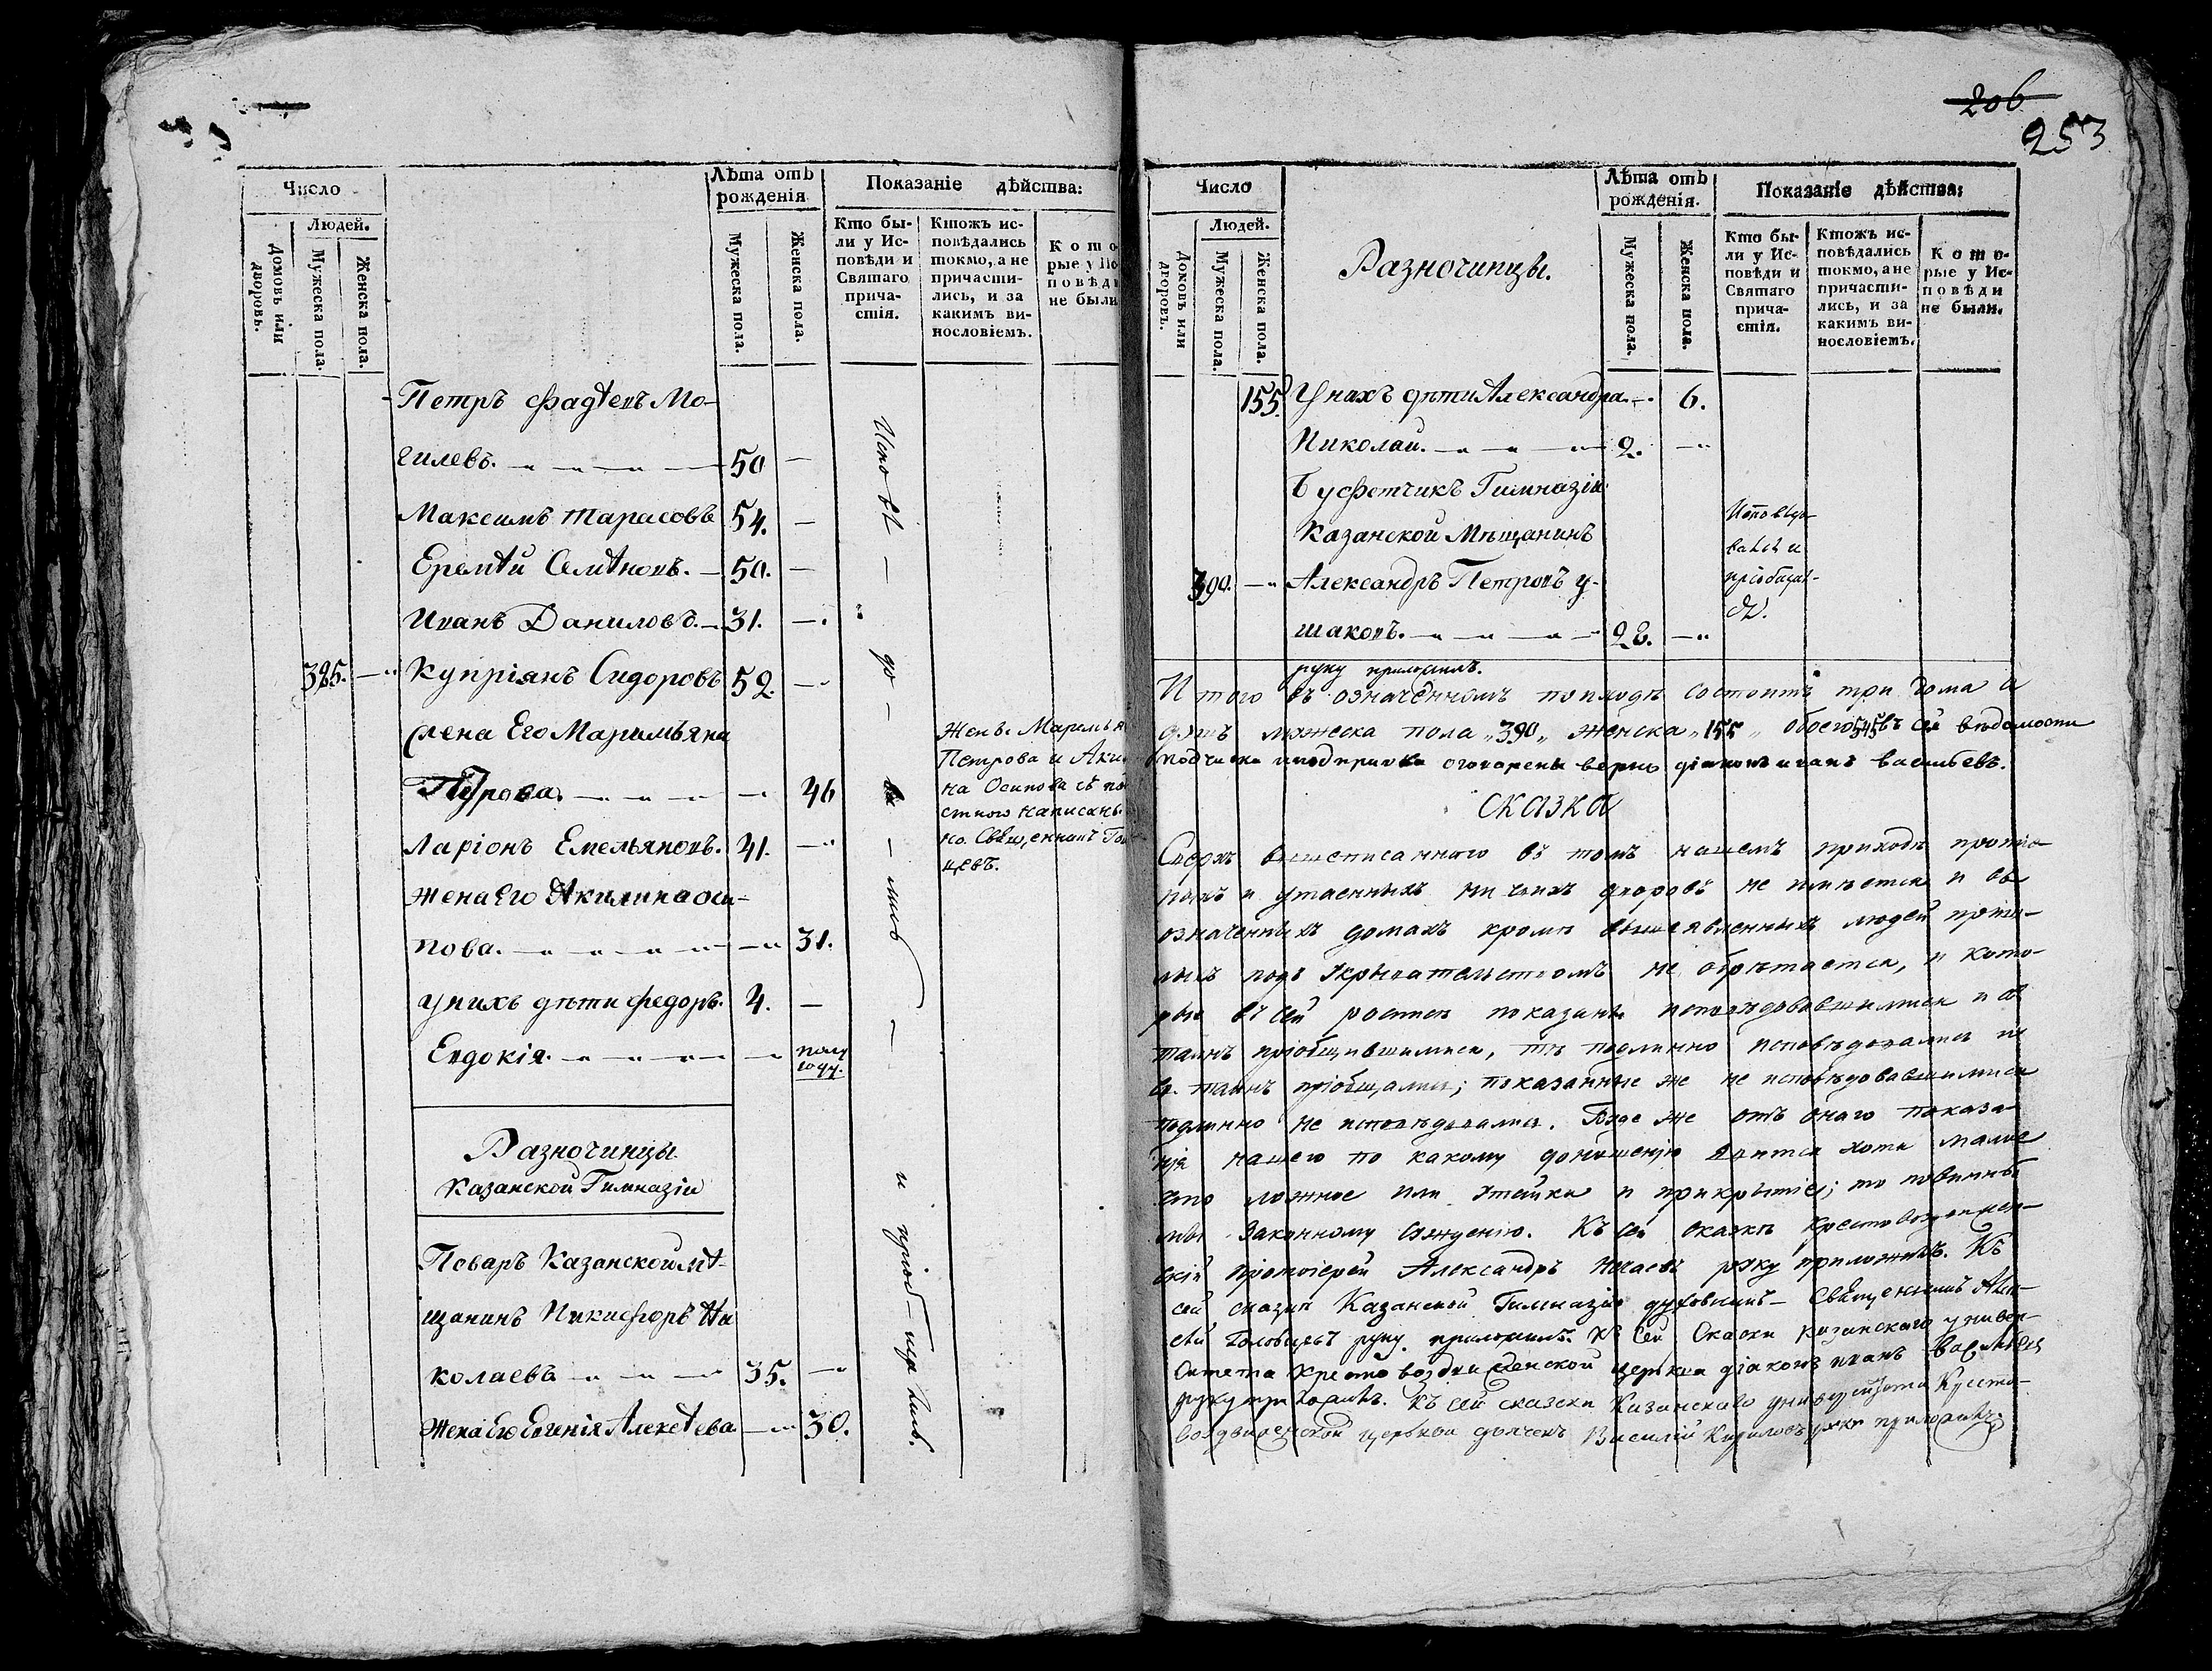 Число
Людей.
Домовъ или дворовъ.
Мужеска пола.
Женска пола.
Лѣта отъ рожденія
Мужеска пола.
Женска пола.
Показаніе дѣйства:
Кто бы-
ли у Ис-
повѣди и
Святаго
прича-
стія.
Ктожъ ис-
повѣдались
токмо, а не
причасти-
лись, и за
какимъ ви-
нословіемъ.
Кото
рые у Ис
повѣди
не были
Петръ Фадѣевъ Мо-
гилевъ. 50
Максимъ Тарасовъ 54.
Еремѣй Семѣновъ. 50.
Иванъ Даниловъ. 31.
385. Купріянъ Сидоровъ 52.
Жена Его Маримьяна
Петрова. 46
Ларіонъ Емельяновъ. 41.
Жена Его Акилина Оси-
пова. 31.
У нихъ дѣти Федоръ. 4.
Евдокія. полу
году.
Исповѣ-до-ва-лись и пріоб-щались.
Жена Маримья
Петрова и Аки
на Осипова съ по
стного написаны
но. Священникъ Го
цевъ.
Разночинцы
Казанской Гимназіи
Поваръ Казанской Мѣ-
щанинъ Никифоръ Ни
колаевъ 35.
Жена Его Евгенія Алексѣева 30.
206
253
Число
Людей.
Домовъ или дворовъ.
Мужеска пола.
Женска пола.
Разночинцы.
Лѣта отъ рожденія.
Мужеска пола.
Женска пола.
Показаніе дѣйства:
Кто бы-
ли у Ис-
повѣди и
Святаго
прича-
стія.
Ктожъ ис-
повѣдались
токмо, а не
причасти-
лись, и за
какимъ ви-
нословіемъ.
Кото-
рые у Ис-
повѣди
не были.
155. У нихъ дѣти Александра 6.
Николай. 2.
Буфетчикъ Гимназіи
Казанской Мѣщанинъ
390. Александръ Петровъ У-
шаковъ. 28.
Исповѣдо-
вался и
пріобщал-
ся.
руку приложилъ.
Итого въ означенномъ приходѣ состоитъ три дома и
душъ мужеска пола „390„ женска „155„ обоего 545 въ сей вѣдомости
подчиска и подправка оговорены верно діаконъ иванъ васильевъ.
Сказка
Сверхъ вышеписаннаго въ томъ нашемъ приходѣ
и утаенныхъ ни чьихъ дворовъ не имѣется и въ
означенныхъ домахъ кромѣ вышеявленныхъ людей
подъ укрывательствомъ не обрѣтается, и кото-
рые въ сей росписи показаны исповѣдовавшимися и св.
таинъ пріобщившимися, тѣ подлинно исповѣдовались и
св. таинъ пріобщались; показанные же не исповѣдовавшимися
подлинно не исповѣдовались. Буде же отъ онаго показа-
нія нашего по какому доношенію явится хотя малое
что ложное или утайка и прикрытіе; то повинны
мы законному сужденію. Къ сей сказкѣ Крестовоздвижен-
скій Протоіерей Александръ Нечаевъ руку приложилъ. Къ
сей сказкѣ Казанской Гимназіи духовникъ Священникъ Алек-
сѣй руку приложилъ. Къ сей Сказки Казанскаго универ-
ситета Крестовоздвиженской церкви діаконъ иванъ Васильевъ
руку приложилъ. Къ сей сказски Казанскаго университета Кресто-
воздвиженской церькви дьячекъ Василій Кириловъ руку приложилъ